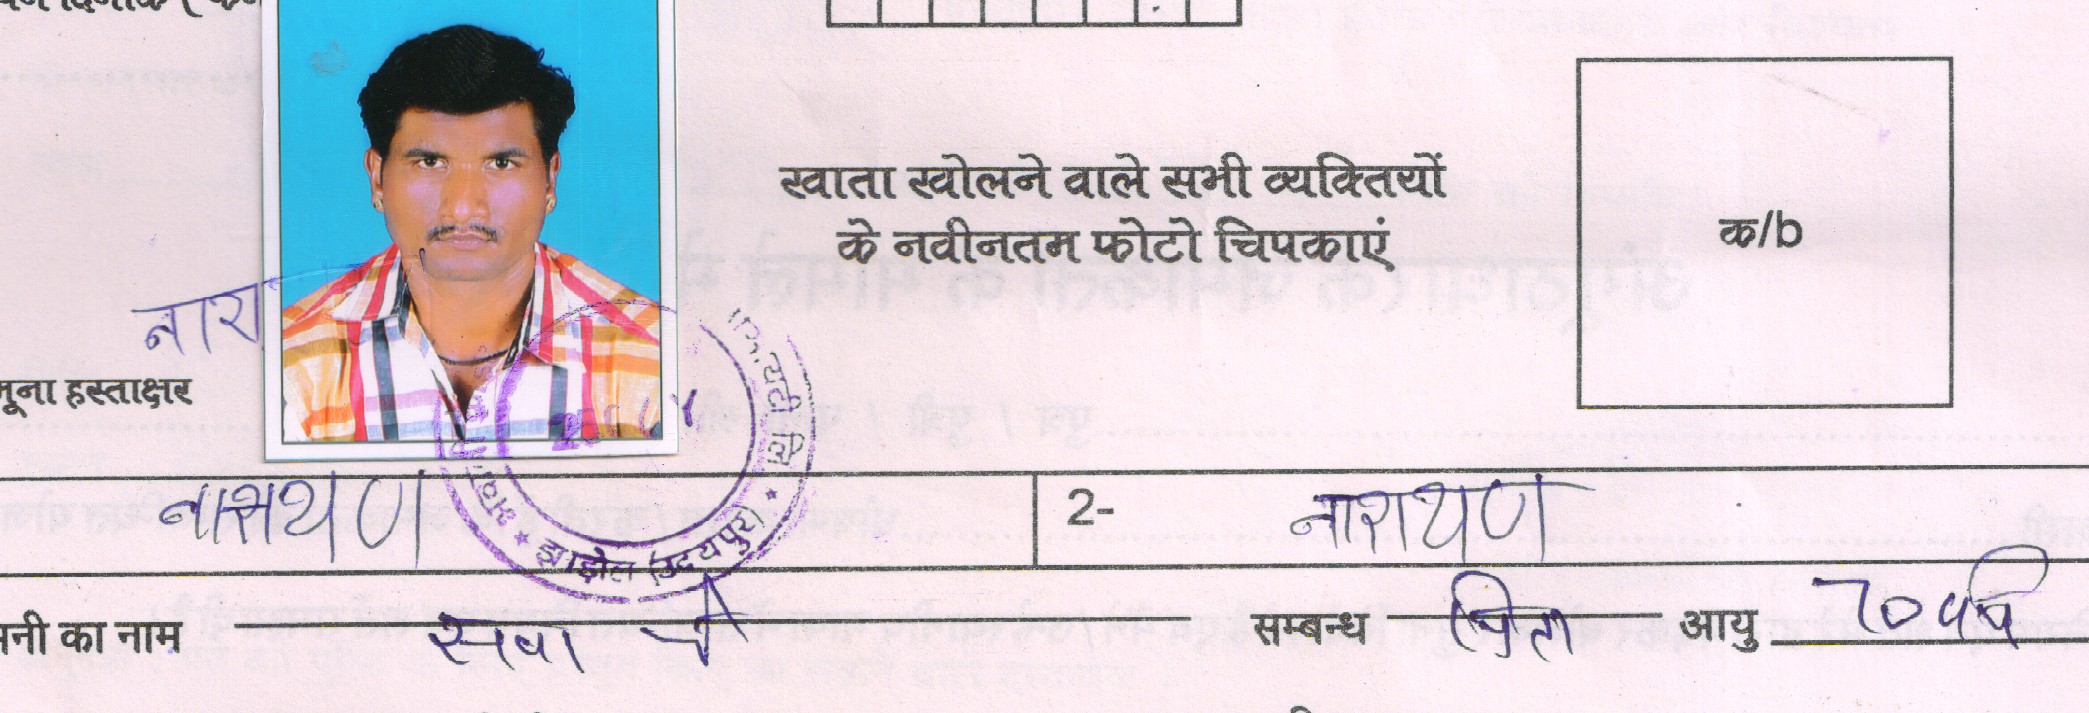 खाता खोलने वाले सभी व्यक्तियों
के नवीनतम फोटो चिपकाएं
क/b
नारा
मूना हस्ताक्षर
नारायण
2- नारायण
झाड़ोल (उदयपुर)
नी का नाम सम्बन्ध पिता आयु 70 वर्ष